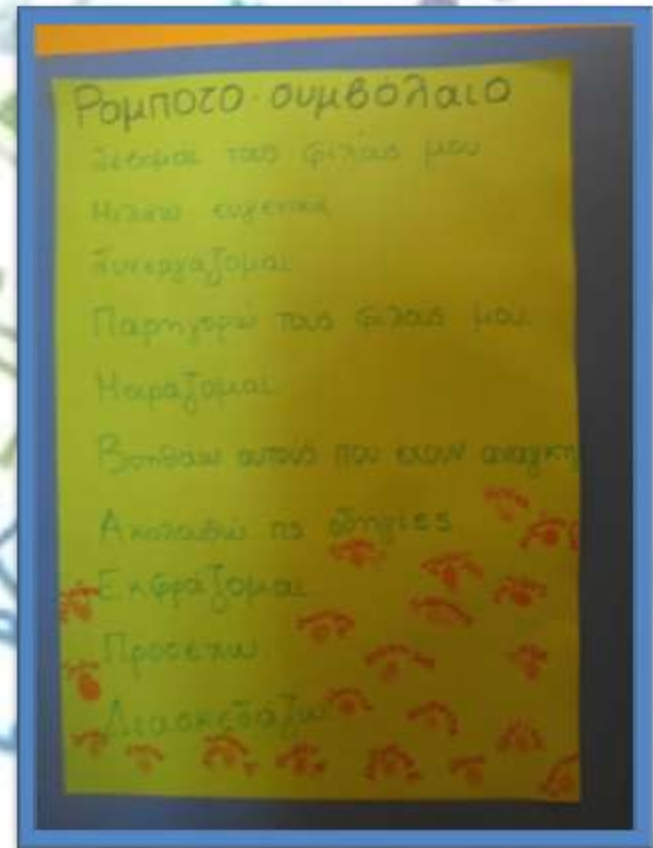 Ρομποτο-συμβόλαιο
Σέβομαι τους φίλους μου
Μιλάω ευγενικά
Συνεργάζομαι
Παρηγορώ τους φίλους μου
Μοιράζομαι
Βοηθάω αυτούς που έχουν ανάγκη
Ακολουθώ τις οδηγίες
Εκφράζομαι
Προσέχω
Διασκεδάζω